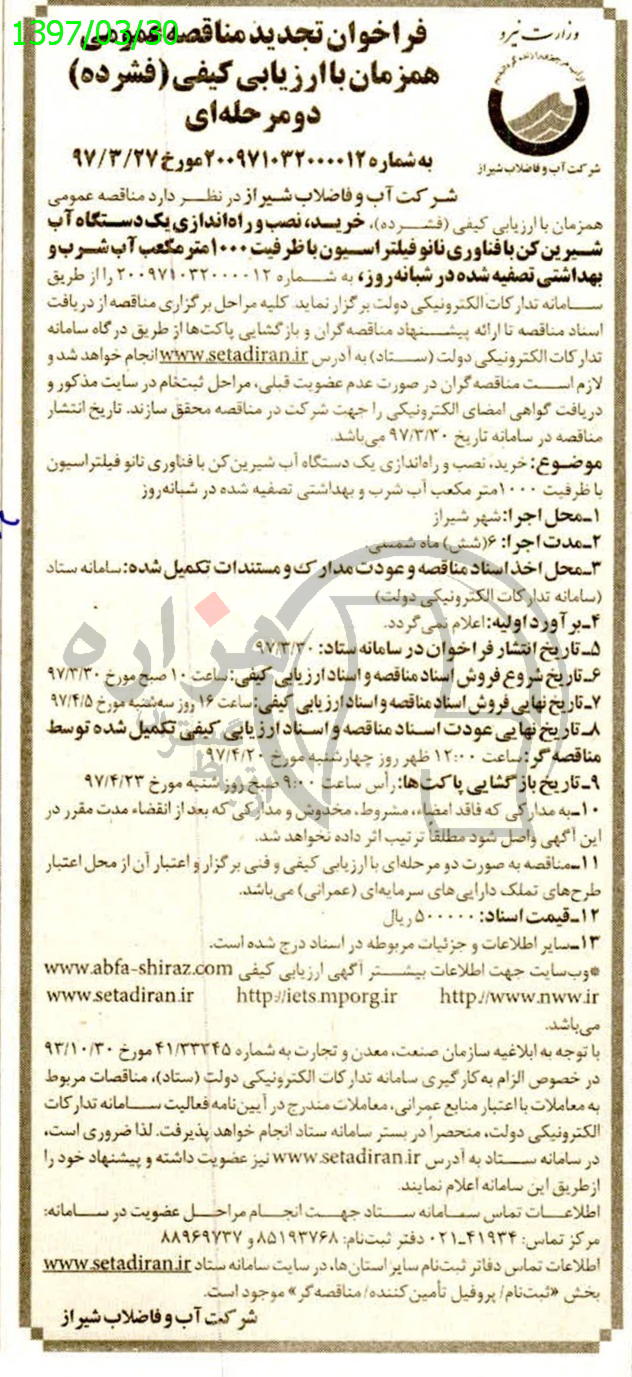 1397/03/30
وزارت نیرو
شرکت آب و فاضلاب شیراز
فراخوان تجدید مناقصه عمومی
همزمان با ارزیابی کیفی (فشرده)
دو مرحله‌ای
به شماره ۲۰۰۹۷۱۰۳۲۰۰۰۰۱۲ مورخ ۹۷/۳/۲۷
شرکت آب و فاضلاب شیراز در نظر دارد مناقصه عمومی
همزمان با ارزیابی کیفی (فشرده)، خرید، نصب و راه‌اندازی یک دستگاه آب
شیرین کن با فناوری نانو فیلتراسیون با ظرفیت ۱۰۰۰ متر مکعب آب شرب و
بهداشتی تصفیه شده در شبانه روز، به شماره ۲۰۰۹۷۱۰۳۲۰۰۰۰۱۲ را از طریق
سامانه تدارکات الکترونیکی دولت برگزار نماید. کلیه مراحل برگزاری مناقصه از دریافت
اسناد مناقصه تا ارائه پیشنهاد مناقصه‌گران و بازگشایی پاکت‌ها از طریق درگاه سامانه
تدارکات الکترونیکی دولت (ستاد) به آدرس www.setadiran.ir انجام خواهد شد و
لازم است مناقصه گران در صورت عدم عضویت قبلی، مراحل ثبت‌نام در سایت مذکور و
دریافت گواهی امضای الکترونیکی را جهت شرکت در مناقصه محقق سازند. تاریخ انتشار
مناقصه در سامانه تاریخ ۹۷/۳/۳۰ می‌باشد.
موضوع: خرید، نصب و راه‌اندازی یک دستگاه آب شیرین‌کن با فناوری نانو فیلتراسیون
با ظرفیت ۱۰۰۰ متر مکعب آب شرب و بهداشتی تصفیه شده در شبانه‌روز
۱ـ محل اجرا: شهر شیراز
۲ـ مدت اجرا: ۶ (شش) ماه شمسی.
۳ـ محل اخذ اسناد مناقصه و عودت مدارک و مستندات تکمیل شده: سامانه ستاد
(سامانه تدارکات الکترونیکی دولت)
۴ـ برآورد اولیه: اعلام نمی‌گردد.
۵ـ تاریخ انتشار فراخوان در سامانه ستاد: ۹۷/۳/۳۰
۶ـ تاریخ شروع فروش اسناد مناقصه و اسناد ارزیابی کیفی: ساعت ۱۰ صبح مورخ ۹۷/۳/۳۰
۷ـ تاریخ نهایی فروش اسناد مناقصه و اسناد ارزیابی کیفی: ساعت ۱۶ روز سه‌شنبه مورخ ۹۷/۴/۵
۸ـ تاریخ نهایی عودت اسناد مناقصه و اسناد ارزیابی کیفی تکمیل شده توسط
مناقصه گر: ساعت ۱۲:۰۰ ظهر روز چهارشنبه مورخ ۹۷/۴/۲۰
۹ـ تاریخ بازگشایی پاکت‌ها: رأس ساعت ۹:۰۰ صبح روز شنبه مورخ ۹۷/۴/۲۳
۱۰ـ به مدارکی که فاقد امضاء، مشروط، مخدوش و مدارکی که بعد از انقضاء مدت مقرر در
این آگهی واصل شود مطلقاً ترتیب اثر داده نخواهد شد.
۱۱ـ مناقصه به صورت دو مرحله‌ای با ارزیابی کیفی و فنی برگزار و اعتبار آن از محل اعتبار
طرح‌های تملک دارایی‌های سرمایه‌ای (عمرانی) می‌باشد.
۱۲ـ قیمت اسناد: ۵۰۰۰۰۰ ریال
۱۳ـ سایر اطلاعات و جزئیات مربوطه در اسناد درج شده است.
*وب‌سایت جهت اطلاعات بیشتر آگهی ارزیابی کیفی www.abfa-shiraz.com
http://www.nww.ir http://iets.mporg.ir www.setadiran.ir
می‌باشد.
با توجه به ابلاغیه سازمان صنعت، معدن و تجارت به شماره ۴۱/۳۳۲۴۵ مورخ ۹۳/۱۰/۳۰
در خصوص الزام به‌کارگیری سامانه تدارکات الکترونیکی دولت (ستاد)، مناقصات مربوط
به معاملات با اعتبار منابع عمرانی، معاملات مندرج در آیین‌نامه فعالیت سامانه تدارکات
الکترونیکی دولت، منحصراً در بستر سامانه ستاد انجام خواهد پذیرفت. لذا ضروری است،
در سامانه ستاد به آدرس www.setadiran.ir نیز عضویت داشته و پیشنهاد خود را
از طریق این سامانه اعلام نمایند.
اطلاعات تماس سامانه ستاد جهت انجام مراحل عضویت در سامانه:
مرکز تماس: ۴۱۹۳۴-۰۲۱ دفتر ثبت‌نام: ۸۵۱۹۳۷۶۸ و ۸۸۹۶۹۷۳۷
اطلاعات تماس دفاتر ثبت‌نام سایر استان‌ها، در سایت سامانه ستاد www.setadiran.ir
بخش «ثبت‌نام/ پروفیل تأمین کننده/ مناقصه گر» موجود است.
شرکت آب و فاضلاب شیراز
هزاره